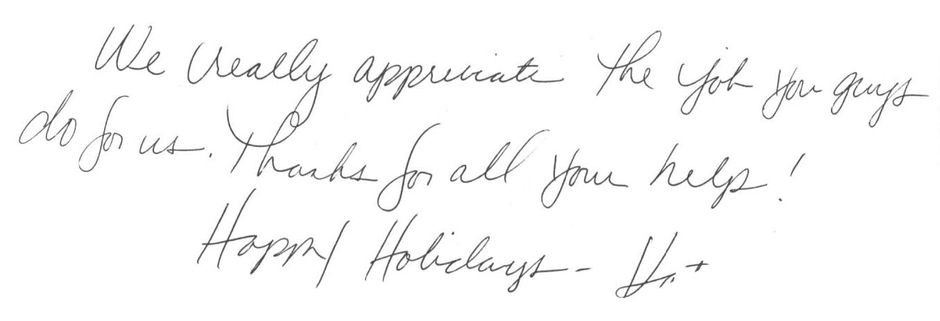 We really appreciate the job you guys
do for us. Thanks for all your help!
Happy Holidays -